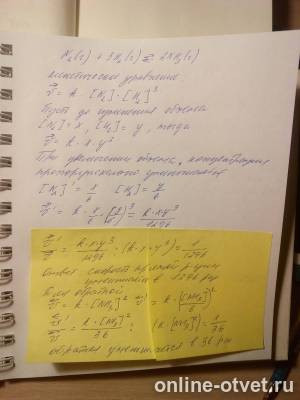 N₂(г) + 3H₂(г) ⇄ 2NH₃(г)
кинетическое уравнение
v = k · [N₂] · [H₂]³
Пусть до изменения объема
[N₂] = x, [H₂] = y, тогда
v = k · x · y³
При увеличении объема, концентрации
пропорционально уменьшатся
[N₂]' = x/6 [H₂] = y/6
v' = k · x/6 · (y/6)³ = k·x·y³/1296
v'/v = k·x·y³/1296 : (k·x·y³) = 1/1296
Ответ скорость прямой р-ции
уменьшится в 1296 раз
Если обратной
v = k · [NH₃]² v' = k · ([NH₃]/6)²
v'/v = k · [NH₃]²/36 : (k·[NH₃]²) = 1/36
обратная уменьшается в 36 раз
online-otvet.ru